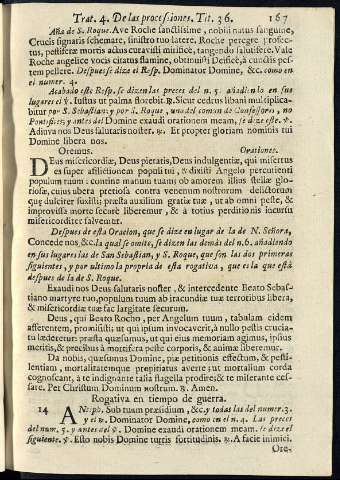 Trat. 4. De las processiones. Tit. 36. 167
Aña de S. Roque. Ave Roche sanctissime, nobili natus sanguine,
Crucis signaris schemate, sinistro tuo latere. Roche peregre profec-
tus, pestiferæ mortis actus curavisti mirifice, tangendo salutifere. Vale
Roche angelice vocis citatus flamine, obtinuisti Deifice, à cunctis pes-
tem pellere. Despues se dize el Resp. Dominator Domine, &c. como en
el numer. 4.
Acabado este Resp. se dizen las preces del n. 5. añadiendo en sus
lugares el ℣. Iustus ut palma florebit. ℟. Sicut cedrus libani multiplica-
bitur por S. Sebastian; y por S. Roque, uno del comun de Confessores, no
Pontifices, y antes del Domine exaudi orationem meam, se dize este. ℣.
Adiuva nos Deus salutaris noster. ℟. Et propter gloriam nominis tui
Domine libera nos.
Oremus. Orationes.
DEus misericordiæ, Deus pietatis, Deus indulgentiæ, qui misertus
es super afflictionem populi tui, & dixisti Angelo percutienti
populum tuum: contine manum tuam ob amorem illius stellæ glo-
riosæ, cuius ubera pretiosa contra venenum nostrorum delictorum
quę dulciter suxisti; præsta auxilium gratiæ tuæ, ut ab omni peste, &
improvissa morte secure liberemur, & à totius perditionis incursu
misericorditer salvemur.
Despues de esta Oracion, que se dize en lugar de la de N. Señora,
Concede nos, &c. la qual se omite, se dizen las demás del n. 6. añadiendo
en sus lugares las de San Sebastian, y S. Roque, que son las dos primeras
siguientes, y por ultimo la propria de esta rogativa, que es la que está
despues de la de S. Roque.
Exaudi nos Deus salutaris noster, & intercedente Beato Sebas-
tiano martyre tuo, populum tuum ab iracundiæ tuæ terroribus libera,
& misericordiæ tuæ fac largitate securum.
Deus, qui Beato Rocho, per Angelum tuum, tabulam eidem
afferentem, promisisti, ut qui ipsum invocaverit, à nullo pestis crucia-
tu læderetur: præsta quæsumus, ut qui eius memoriam agimus, ipsius
meritis, & precibus à mortifera peste corporis, & animæ liberemur.
Da nobis, quæsumus Domine, piæ petitionis effectum, & pesti-
lentiam, mortalitatemque propitiatus averte; ut mortalium corda
cognoscant, à te indignante talia flagella prodire; & te miserante ces-
sare. Per Christum Dominum nostrum. ℟. Amen.
Rogativa en tiempo de guerra.
14 ANtiph. Sub tuum præsidium, &c. y todas las del numer. 3.
y el ℟. Dominator Domine, como en el n. 4. Las preces
del num. 5. y antes del ℣. Domine exaudi orationem meam. se dize el
siguiente. ℣. Esto nobis Domine turris fortitudinis. ℟. A facie inimici.
Ore-